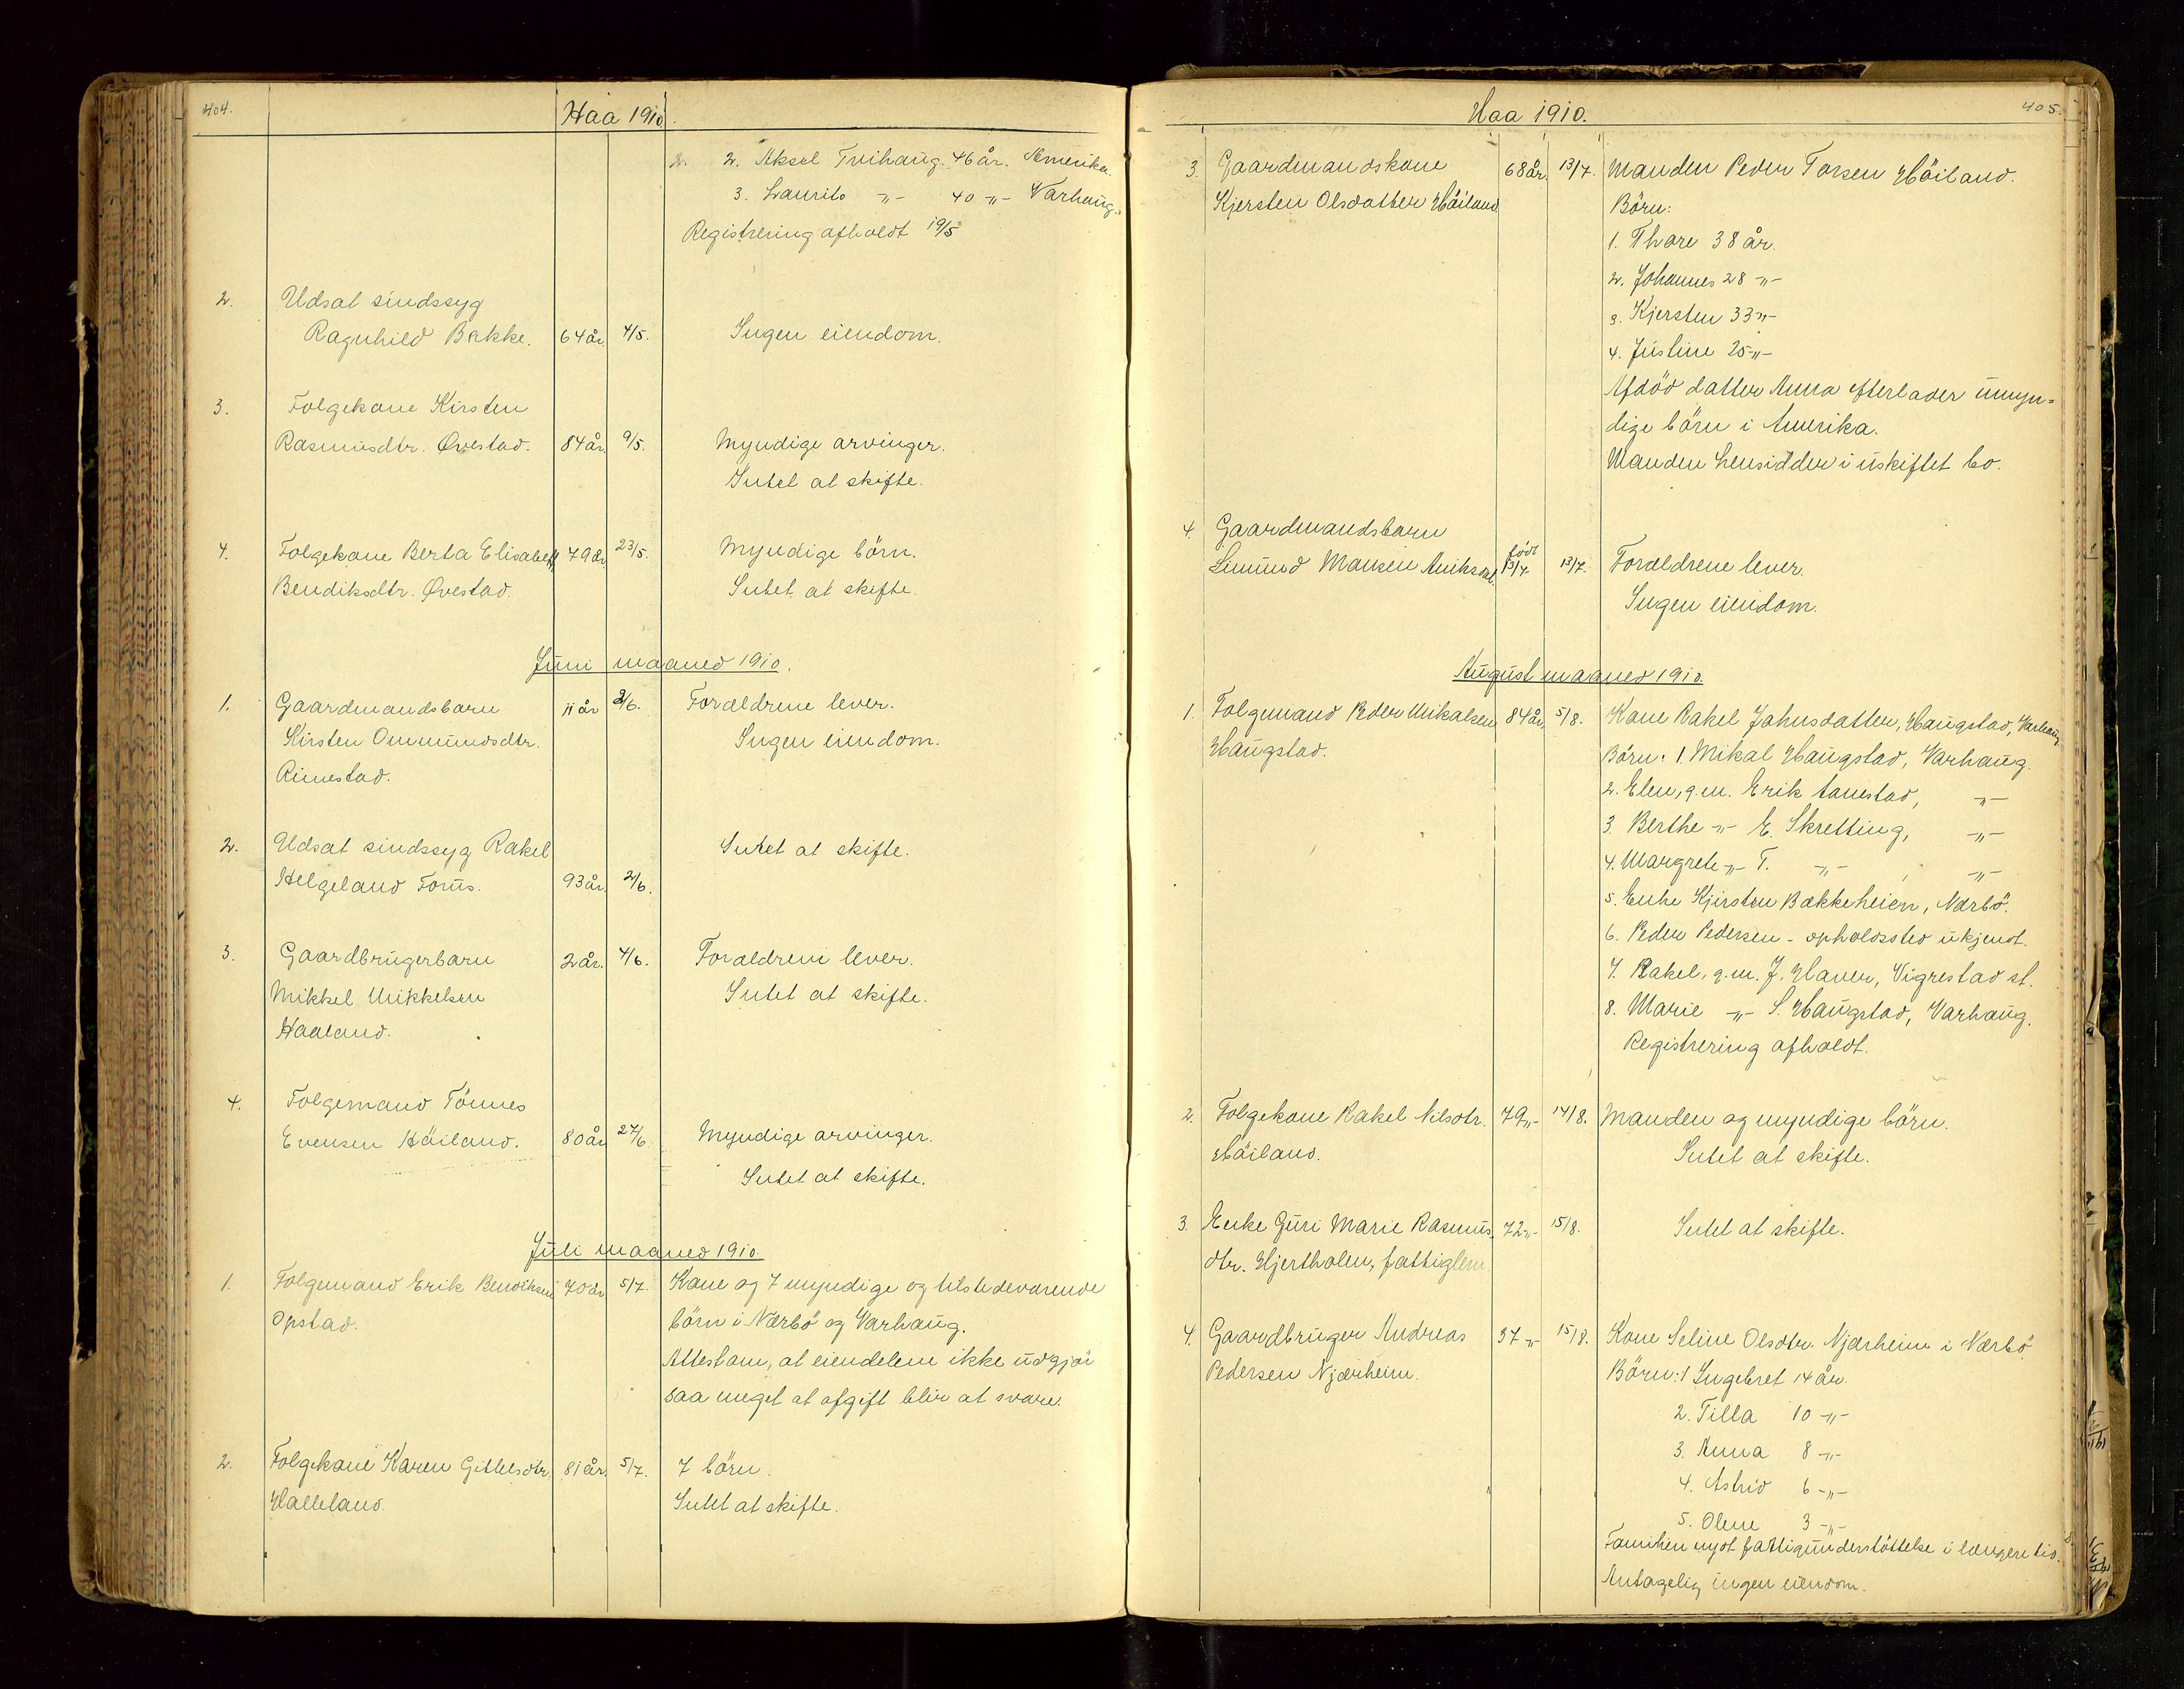 404.
Haa 1910.
2. Aksel Treihaug 46 år. Amerika.
3. Laurits -"- 40 -"- Varhaug.
Registrering afholdt 19/5
2. Udsat sindssyg
Ragnhild Bakke. 64 år. 4/5. Ingen eiendom.
3. Folgekone Kirsten
Rasmusdtr. Øvestad. 84 år. 9/5. Myndige arvinger.
Intet at skifte.
4. Folgekone Berta Elisabeth 79 år. 23/5. Myndige börn.
Bendiksdtr. Øvestad. Intet at skifte.
Juni maaned 1910.
1. Gaardmandsbarn 11 år 2/6. Forældrene lever.
Kirsten Ommundsdtr. Ingen eiendom.
Rimestad.
2. Udsat sindssyg Rakel Intet at skifte.
Helgeland Torüs. 93 år. 2/6.
3. Gaardbrugerbarn 2 år. 4/6. Forældrene lever.
Mikkel Mikkelsen Intet at skifte.
Haaland.
4. Folgemand Tönnes
Evensen Höiland. 80 år 27/6 Myndige arvinger.
Intet at skifte.
Juli maaned 1910.
1. Folgemand Erik Bendiksen 70 år 5/7. Kone og 7 myndige og tilstedeværende
Opstad. börn i Nærbö og Varhaug.
Attestam, at eiendelene ikke udgjör
saa meget at afgift blir at svare.
2. Folgekone Karen Gittelsdtr. 81 år. 5/7. 7 börn.
Halleland. Intet at skifte.
405.
Haa 1910.
3. Gaardmandskone 68 år. 13/7. Manden Peder Torsen Höiland.
Kjersten Olsdatter Höiland. Börn:
1. Thore 38 år.
2. Johannes 28 -"-
3. Kjersten 33 -"-
4. Justine 25 -"-
Afdöd datter Anna efterlader umyn=
dige börn i Amerika.
Manden hensidder i uskiftet bo.
4. Gaardmandsbarn
Simund Mansen Aniksdal. födt 13/7 13/7. Forældrene lever.
Ingen eiendom.
August maaned 1910.
1. Folgemand Peder Mikalsen 84 år. 5/8. Kone Rakel Jahnsdatter, Haugstad, Varhaug
Haugstad. Börn: 1. Mikal Haugstad, Varhaug.
2. Elen, g.m. Erik Aanestad, -"-
3. Berthe -"- E. Skretting, -"-
4. Margrete -"- T. -"- -"-
5. Enke Kjirsten Bakkeheien, Nærbö.
6. Peder Pedersen - opholdssted ukjendt.
7. Rakel, g.m. J. Haver, Vigrestad st.
8. Marie -"- S. Haugstad, Varhaug.
Registrering afholdt.
2. Folgekone Rakel Nilsdtr. 79 -"- 14/8. Manden og myndige börn.
Höiland. Intet at skifte.
3. Enke Guri Marie Rasmus 72 -"- 15/8. Intet at skifte.
dtr. Hjertholen, fattiglem.
4. Gaardbruger Andreas 37 -"- 15/8. Kone Seline Olsdtr. Njærheim i Nærbö
Pedersen Njærheim. Börn: 1 Ingebret 14 år.
2. Tilla 10 -"-
3. Anna 8 -"-
4. Astrid 6 -"-
5. Olene 3 -"-
Familien nydt fattigunderstöttelse i længere tid.
Antagelig ingen eiendom.